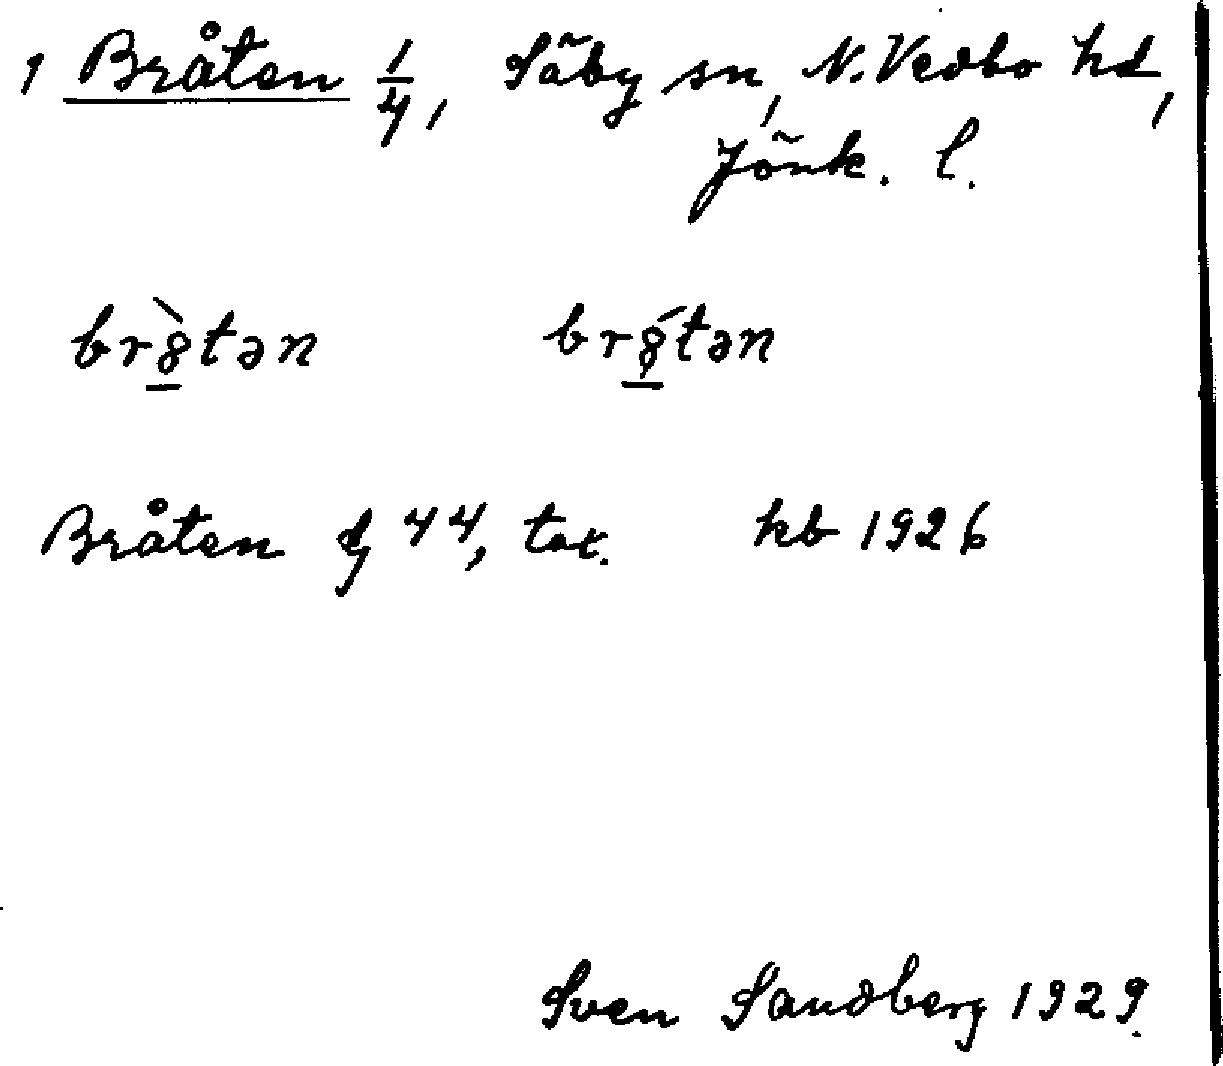 1 Bråten 1/4, Säby sn, N. Vedbo hd,
Jönk. l.
br8̲̀tən br8̲́tən
Bråten 44, tax. kb 1926
Sven Sandberg 1929.